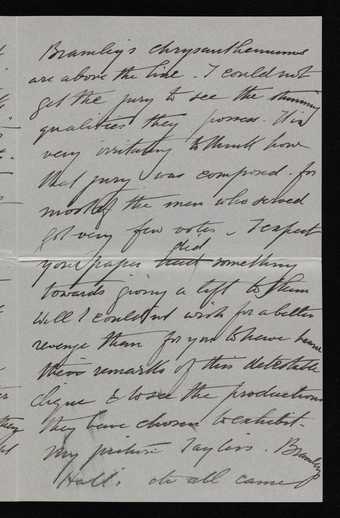 Bramley's chrysanthemums
are above the line. I could not
get the jury to see the stunning
qualities they possess. It is
very irritating to think how
that jury was composed. for
most of the men who served
got very few votes. I expect
your paper did something
towards giving a lift to them
Well I couldnt wish for a better
revenge than for you to have
their remarks of this detestable
clique & to see the productions
they have chosen to exhibit.
My picture Taylers. Bramleys
Hall's etc all came